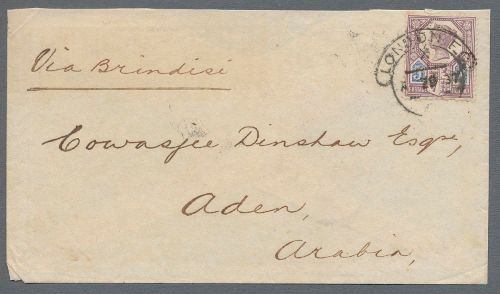 Via Brindisi
LONDON E.C
Cowasjee Dinshaw Esqre,
Aden,
Arabia,